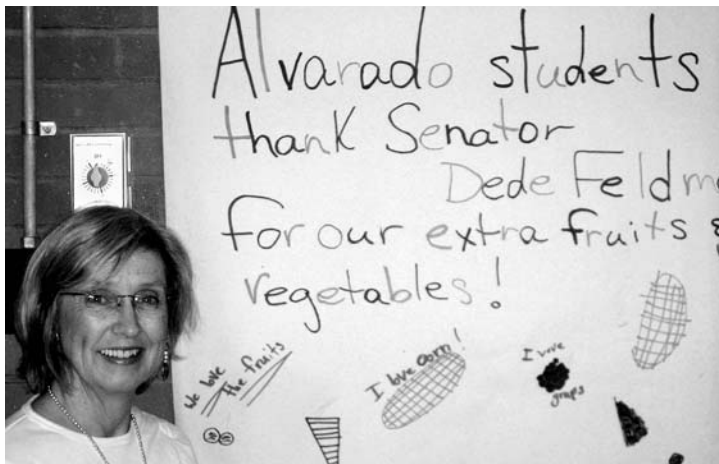 Alvarado students
thank Senator
Dede Feldm
for our extra fruits &
vegetables!
We love
the fruits
I love corn!
I love
graps